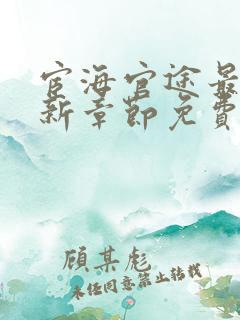 宦海官途最
新章節免費
顧某彪
未经同意禁止转载